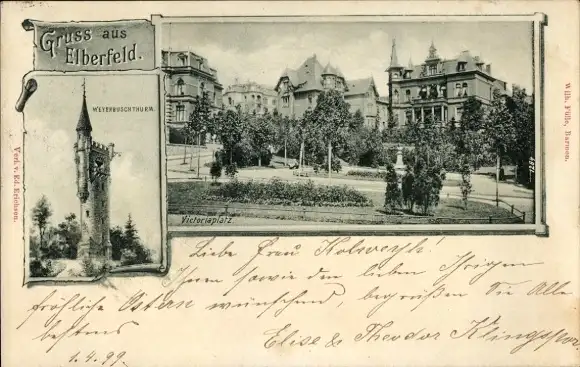 Gruss aus
Elberfeld.
WEYERBUSCHTHURM.
Victoriaplatz.
1284
Verl. v. Ed. Erichson.
Wilh. Fülle, Barmen.
Liebe Frau
Ihnen sowie den lieben Ihrigen
fröhliche Ostern wünschend, begrüßen Sie Alle
bestens
Elise & Theodor Klingspor.
1.4.99.